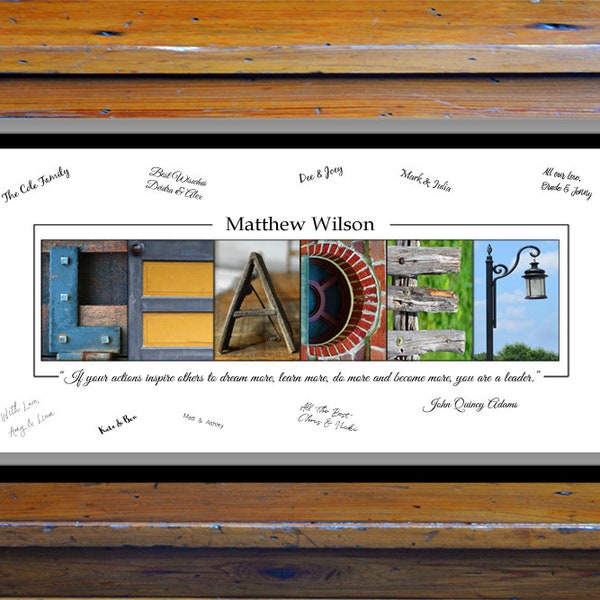 The Cole Family
Best Wisches
Deidra & Alex
Dee & Joey
Mark & Julia
All our love,
Brade & Jenny
Matthew Wilson
LEADER
“If your actions inspire others to dream more, learn more, do more and become more, you are a leader.”
John Quincy Adams
With Love,
Amy & Liam
Kate & Ben
Matt & Ashley
All The Best-
Chris & Vicki